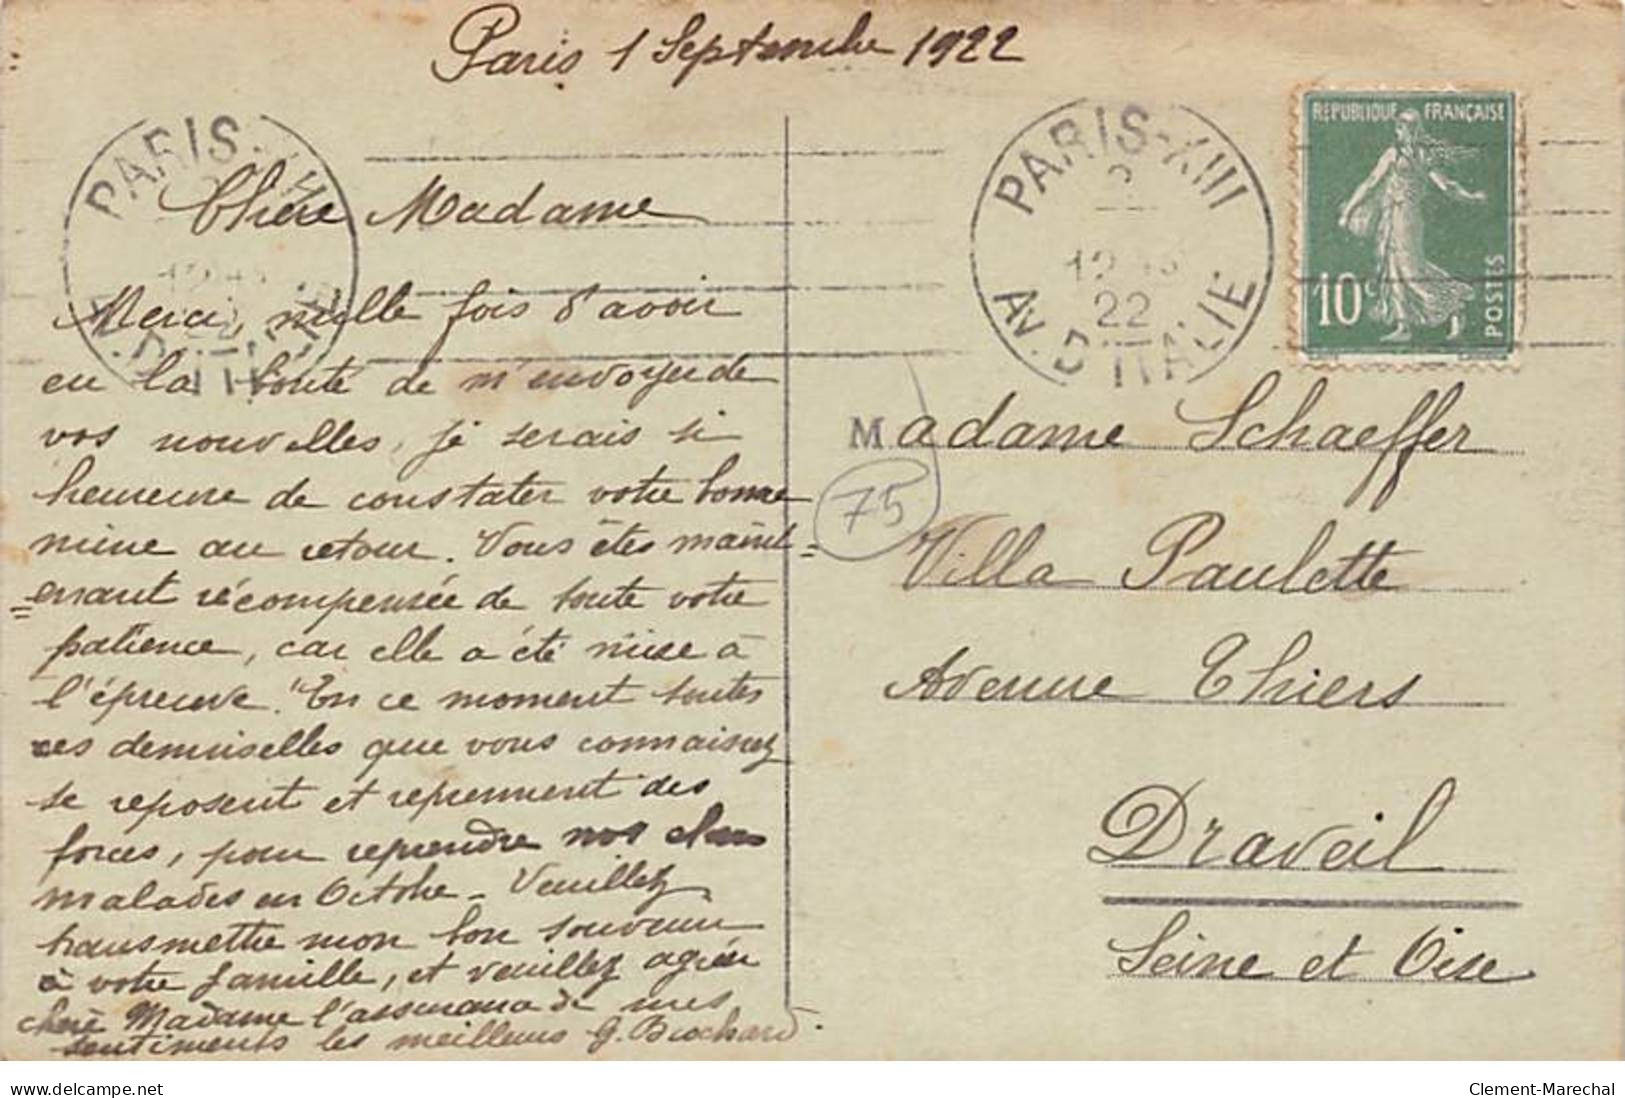 Paris 1 Septembre 1922
PARIS-XIII
AV. D'ITALIE
Chère Madame
Merci, mille fois d'avoir
eu la bonté de m'envoyer de
vos nouvelles, je serais si
heureuse de constater votre bonne
mine au retour. Vous êtes maint=
=enant récompensée de toute votre
patience, car elle a été mise à
l'épreuve. En ce moment toutes
ces demoiselles que vous connaissez
se reposent et reprennent des
forces, pour reprendre nos chers
malades en Octobre – Veuillez
transmettre mon bon souvenir
à votre famille, et veuillez agréer
chère Madame l'assurance de mes
sentiments les meilleurs G. Brochard.
PARIS-XIII
2
12
22
AV. D'ITALIE
REPUBLIQUE FRANÇAISE
10c
POSTES
Madame Schaeffer
75
Villa Paulette
Avenue Thiers
Draveil
Seine et Oise
delcampe.net
Clement-Marechal